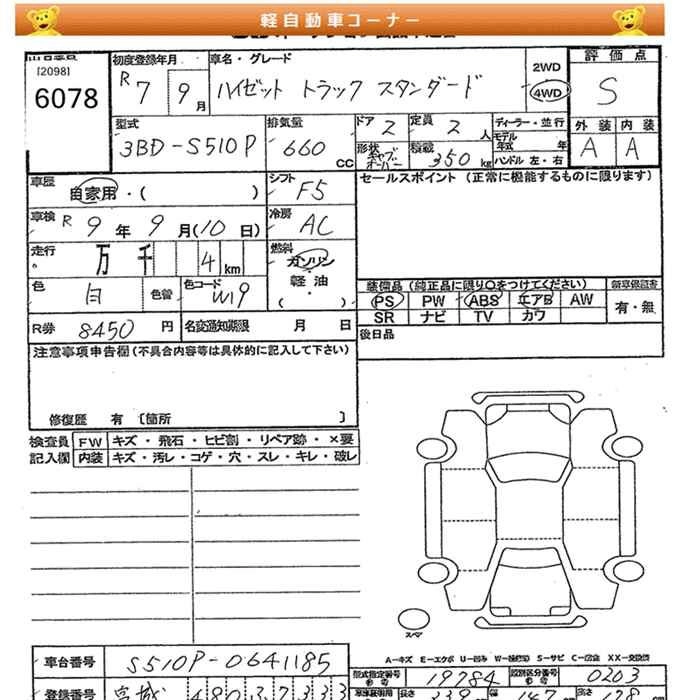 軽自動車コーナー
[2098]
6078
初度登録年月
R 7 9 月
車名・グレード
ハイゼット トラック スタンダード
2WD
4WD
評価点
S
型式
3BD-S510P
排気量
660 cc
ドア
2
定員
2 人
形状
キャブオーバー
積載
350 kg
ディーラー・並行
モデル年式 年
ハンドル 左・右
外装 内装
A A
車歴
自家用・( )
シフト
F5
セールスポイント (正常に機能するものに限ります)
車検
R 9 年 9 月 (10 日)
冷房
AC
走行
万 千 4 km
燃料
ガソリン
・
軽油
・
( )
色
白
色替
色コード
W19
装備品 (純正品に限り○をつけてください)
PS PW ABS エアB AW
SR ナビ TV カワ
有・無
R券 8450 円
名変通知期限 月 日
後日品
注意事項申告欄 (不具合内容等は具体的に記入して下さい)
修復歴 有 〔箇所 〕
検査員 FW キズ・飛石・ヒビ割・リペア跡・×要
記入欄 内装 キズ・汚レ・コゲ・穴・スレ・キレ・破レ
スペア
車台番号 S510P-0641185
型式指定番号 19784
類別区分番号 0203
登録番号 宮城 480